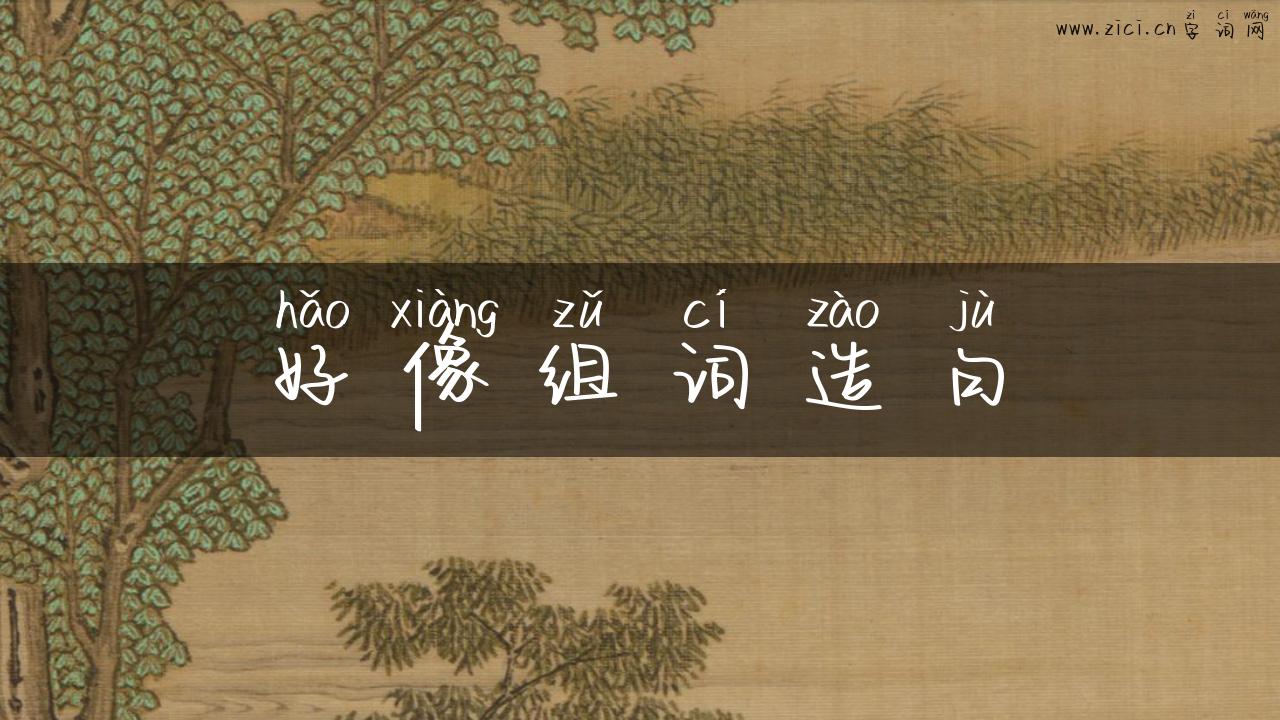 zì cí wǎng
www.zici.cn字词网
hǎo xiàng zǔ cí zào jù
好像组词造句